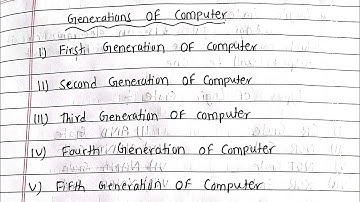 Generations Of Computer
I) First Generation Of Computer
II) Second Generation Of Computer
III) Third Generation Of Computer
IV) Fourth Generation Of Computer
V) Fifth Generation Of Computer